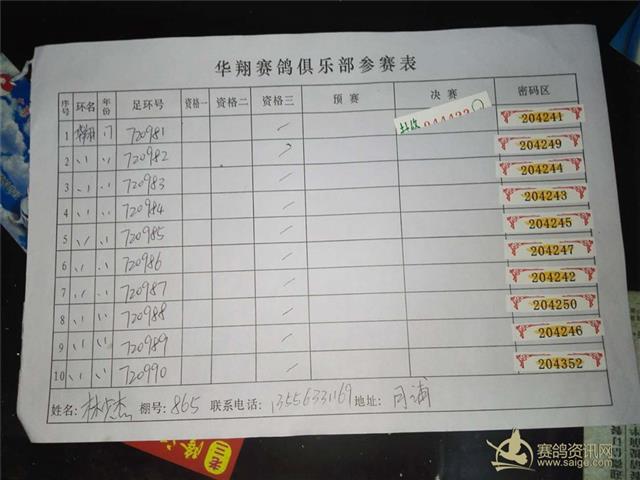 华翔赛鸽俱乐部参赛表
序号 环名 年份 足环号 资格一 资格二 资格三 预赛 决赛 密码区
1 华翔 17 720981 204241
2 〃 〃 720982 204249
3 〃 〃 720983 204244
4 〃 〃 720984 204243
5 〃 〃 720985 204245
6 〃 〃 720986 204247
7 〃 〃 720987 204242
8 〃 〃 720988 204250
9 〃 〃 720989 204246
10 〃 〃 720990 204352
姓名: 林 杰 棚号: 865 联系电话: 13556331169 地址: 月浦
老三
赛鸽资讯网
www.saige.com